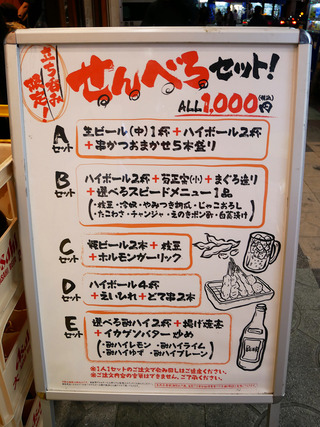 立ち呑み
限定!
せんべろセット!
ALL 1,000円(税込)
Aセット
生ビール(中)1杯+ハイボール2杯
+串かつおまかせ5本盛り
Bセット
ハイボール2杯+菊正宗(小)+まぐろ造り
+選べるスピードメニュー1品
(・枝豆・冷奴・やみつき胡瓜・じゃこおろし
・たこわさ・チャンジャ・えのきポン酢・白菜漬け)
Cセット
瓶ビール2本+枝豆
+ホルモンガーリック
Dセット
ハイボール4杯
+えいひれ+どて串2本
Eセット
選べる酎ハイ2杯+揚げ焼売
+イカゲソバター炒め
(・酎ハイレモン・酎ハイライム
・酎ハイゆず・酎ハイプレーン)
※1人1セットのご注文で飲み回しはご遠慮ください。
※ご注文内容の変更はできません。ご了承ください。